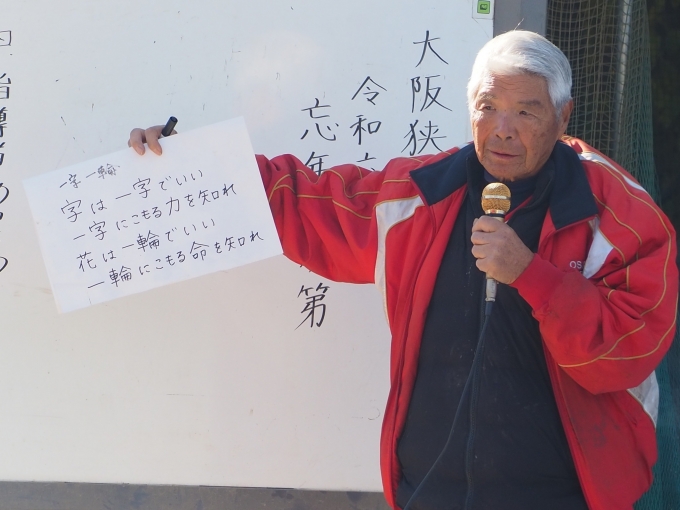 大阪狭
令和
忘年
第
一字一輪
字は一字でいい
一字にこもる力を知れ
花は一輪でいい
一輪にこもる命を知れ
OS